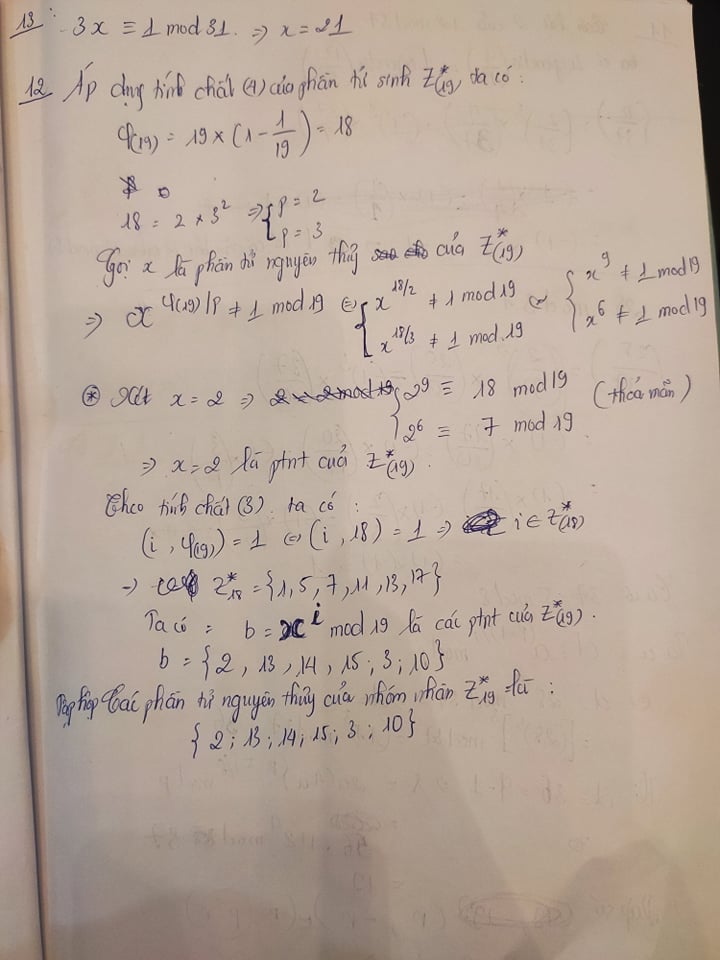 13 : 3x ≡ 1 mod 31. ⇒ x = 21
12 Áp dụng tính chất (4) của phần tử sinh Z*(19) ta có :
φ(19) = 19 × (1 - 1/19) = 18
18 = 2 × 3² ⇒ { p = 2
p = 3
Gọi x là phần tử nguyên thủy của Z*(19)
⇒ x^φ(19)/p ≠ 1 mod 19 ⇔ { x^18/2 ≠ 1 mod 19 ⇔ { x^9 ≠ 1 mod 19
x^18/3 ≠ 1 mod 19 x^6 ≠ 1 mod 19
⊛ Xét x = 2 ⇒ { 2^9 ≡ 18 mod 19 (thỏa mãn)
2^6 ≡ 7 mod 19
⇒ x = 2 là ptnt cuả Z*(19).
Theo tính chất (3) ta có :
(i, φ(19)) = 1 ⇔ (i, 18) = 1 ⇒ i ∈ Z*(18)
⇒ Z*18 = {1, 5, 7, 11, 13, 17}
Ta có : b = x^i mod 19 là các ptnt của Z*(19).
b = {2, 13, 14, 15; 3; 10}
Tập hợp Các phần tử nguyên thủy của nhóm nhân Z*19 là :
{2; 13; 14; 15; 3; 10}